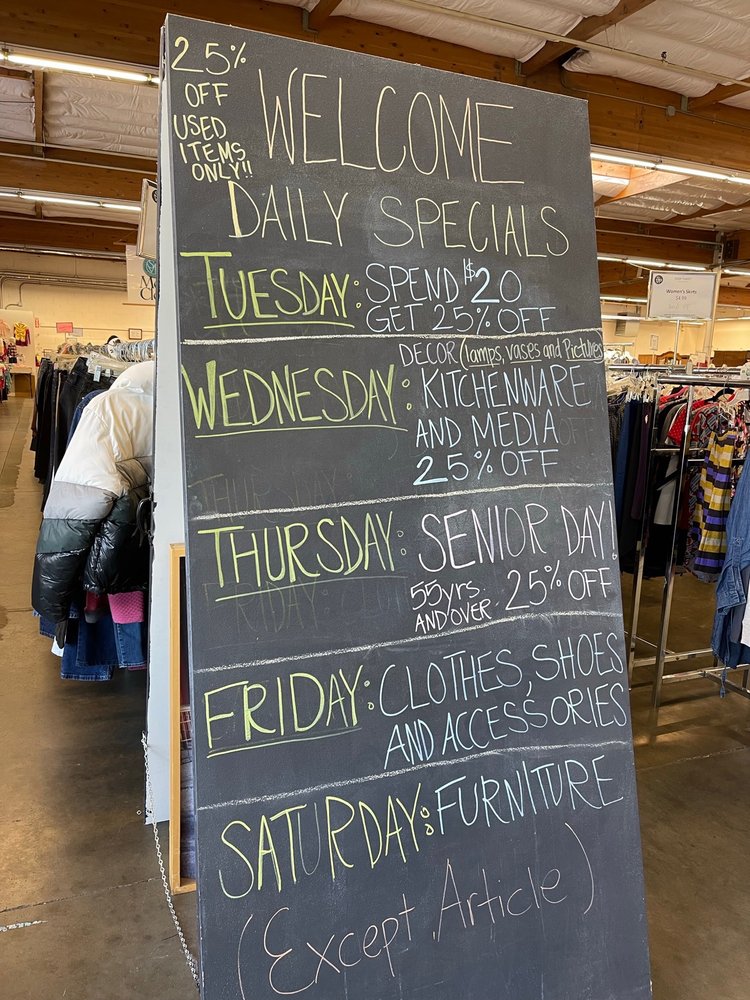 25%
OFF
USED
ITEMS
ONLY!!
WELCOME
DAILY SPECIALS
TUESDAY: SPEND $20
GET 25% OFF
DECOR (lamps, vases and Pictures
WEDNESDAY: KITCHENWARE
AND MEDIA
25% OFF
THURSDAY: SENIOR DAY!
55yrs AND OVER 25% OFF
FRIDAY: CLOTHES, SHOES
AND ACCESSORIES
SATURDAY: FURNITURE
(Except, Article)
Women's Skirts
$4.99